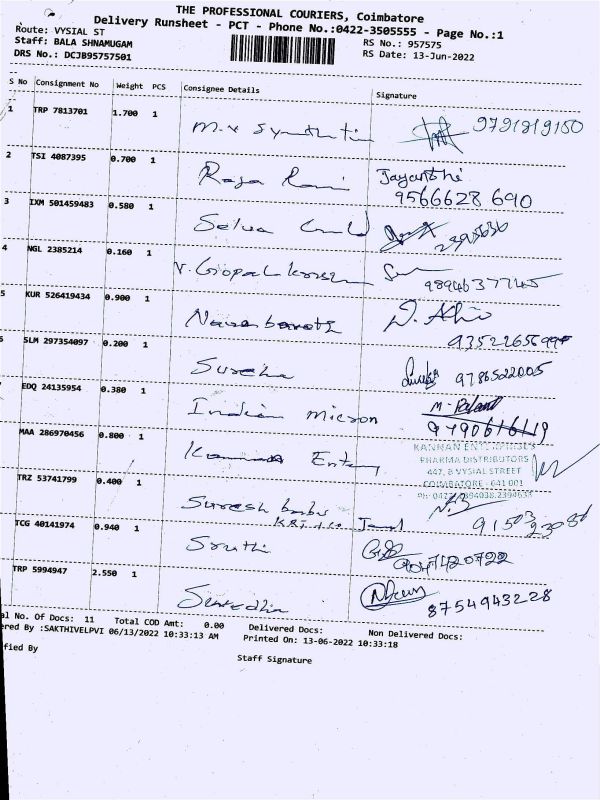 THE PROFESSIONAL COURIERS, Coimbatore
Delivery Runsheet - PCT - Phone No.:0422-3505555 - Page No.:1
Route: VYSIAL ST
RS No.: 957575
Staff: BALA SHNAMUGAM
RS Date: 13-Jun-2022
DRS No.: DCJB95757501
S No Consignment No Weight PCS Consignee Details Signature
1 TRP 7813701 1.700 1 9791819160
2 TSI 4087395 0.700 1 Raja Rani Jayanthi
9566628 690
3 IXM 501459483 0.580 1 Selva
4 NGL 2385214 0.160 1 V. Gopal
5 KUR 526419434 0.900 1
6 SLM 297354097 0.200 1 Surekha 9786522005
EDQ 24135954 0.380 1 Indian Micron
MAA 286970456 0.800 1
KANNAN ENTERPRISES
PHARMA DISTRIBUTORS
447, B VYSIAL STREET
COIMBATORE - 641 001
TRZ 53741799 0.400 1 Suresh babu
TCG 40141974 0.940 1 Sruthi
TRP 5994947 2.550 1 8754943228
al No. Of Docs: 11 Total COD Amt: 0.00 Delivered Docs: Non Delivered Docs:
ered By :SAKTHIVELPVI 06/13/2022 10:33:13 AM Printed On: 13-06-2022 10:33:18
fied By
Staff Signature